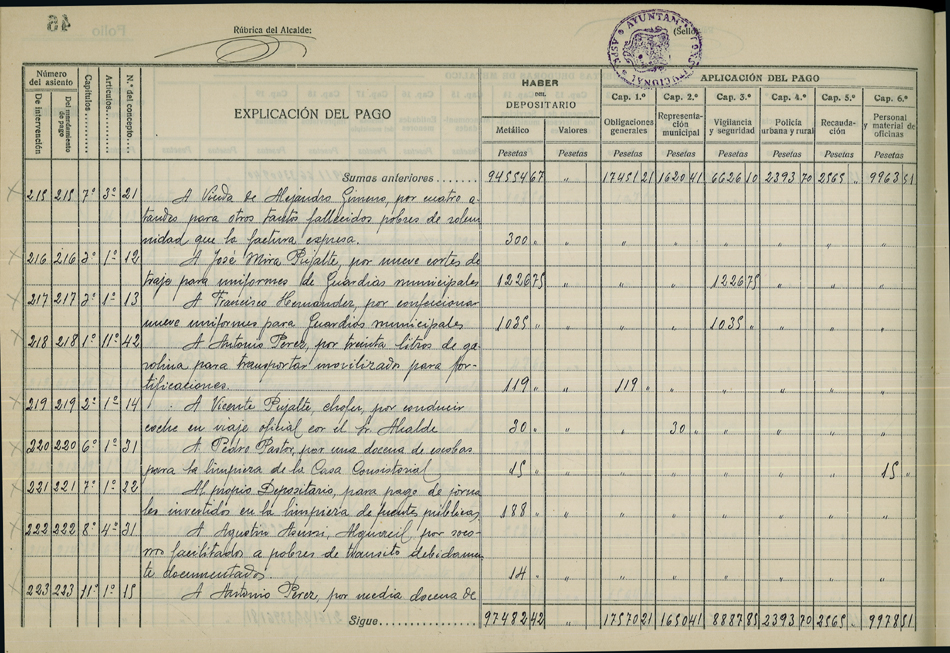 Rúbrica del Alcalde:
(Sello
Folio 46
Número del asiento
De intervención
Del mandamiento de pago
Capítulos
Artículos
N.º del concepto
EXPLICACIÓN DEL PAGO
HABER DEL DEPOSITARIO
Metálico
Valores
Pesetas Pesetas
APLICACIÓN DEL PAGO
Cap. 1.º Cap. 2.º Cap. 3.º Cap. 4.º Cap. 5.º Cap. 6.º
Obligaciones generales
Representación municipal
Vigilancia y seguridad
Policía urbana y rural
Recaudación
Personal y material de oficinas
Pesetas Pesetas Pesetas Pesetas Pesetas Pesetas
Sumas anteriores....... 94554 67 " 17451 21 1620 41 6626 10 2393 70 2565 " 9963 51
215 215 7º 3º 21 A Viuda de Alejandro Gimeno, por cuatro a-
taudes para otros tantos fallecidos pobres de solem
nidad que la factura expresa. 300 " " " " " " " "
216 216 3º 1º 12 A José Mira Pujalte, por nueve cortes de
traje para uniformes de Guardias municipales 1226 75 " " " 1226 75 " " "
217 217 3º 1º 13 A Francisco Hernandez, por confeccionar
nueve uniformes para Guardias municipales 1035 " " " " 1035 " " " "
218 218 1º 11º 42 A Antonio Perez, por treinta litros de ga-
solina para transportar movilizados para for-
tificaciones. 119 " " 119 " " " " " "
219 219 2º 1º 14 A Vicente Pujalte, chofer, por conducir
coche en viaje oficial con el Sr. Alcalde 30 " " " 30 " " " " "
220 220 6º 1º 31 A Pedro Pastor, por una docena de escobas
para la limpieza de la Casa Consistorial 15 " " " " " " " 15 "
221 221 7º 1º 22 Al propio Depositario, para pago de jorna
les invertidos en la limpieza de fuentes públicas. 188 " " " " " " " "
222 222 8º 4º 31 A Agustin Asensi, Alguacil, por soco-
rros facilitados a pobres de transito debidamen
te documentados. 14 " " " " " " " "
223 223 11º 1º 15 A Antonio Perez, por media docena de
Sigue................ 97482 42 " 17570 21 1650 41 8887 85 2393 70 2565 " 9978 51